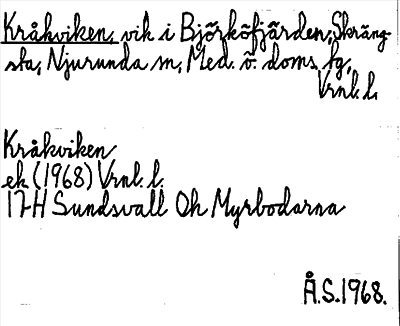 Kråkviken, vik i Björköfjärden, Skräng-
sta, Njurunda sn, Med. ö. doms. fg,
Vrnl. l.
Kråkviken
ek (1968) Vrnl. l.
17H Sundsvall Ok Myrbodarna
Å.S. 1968.